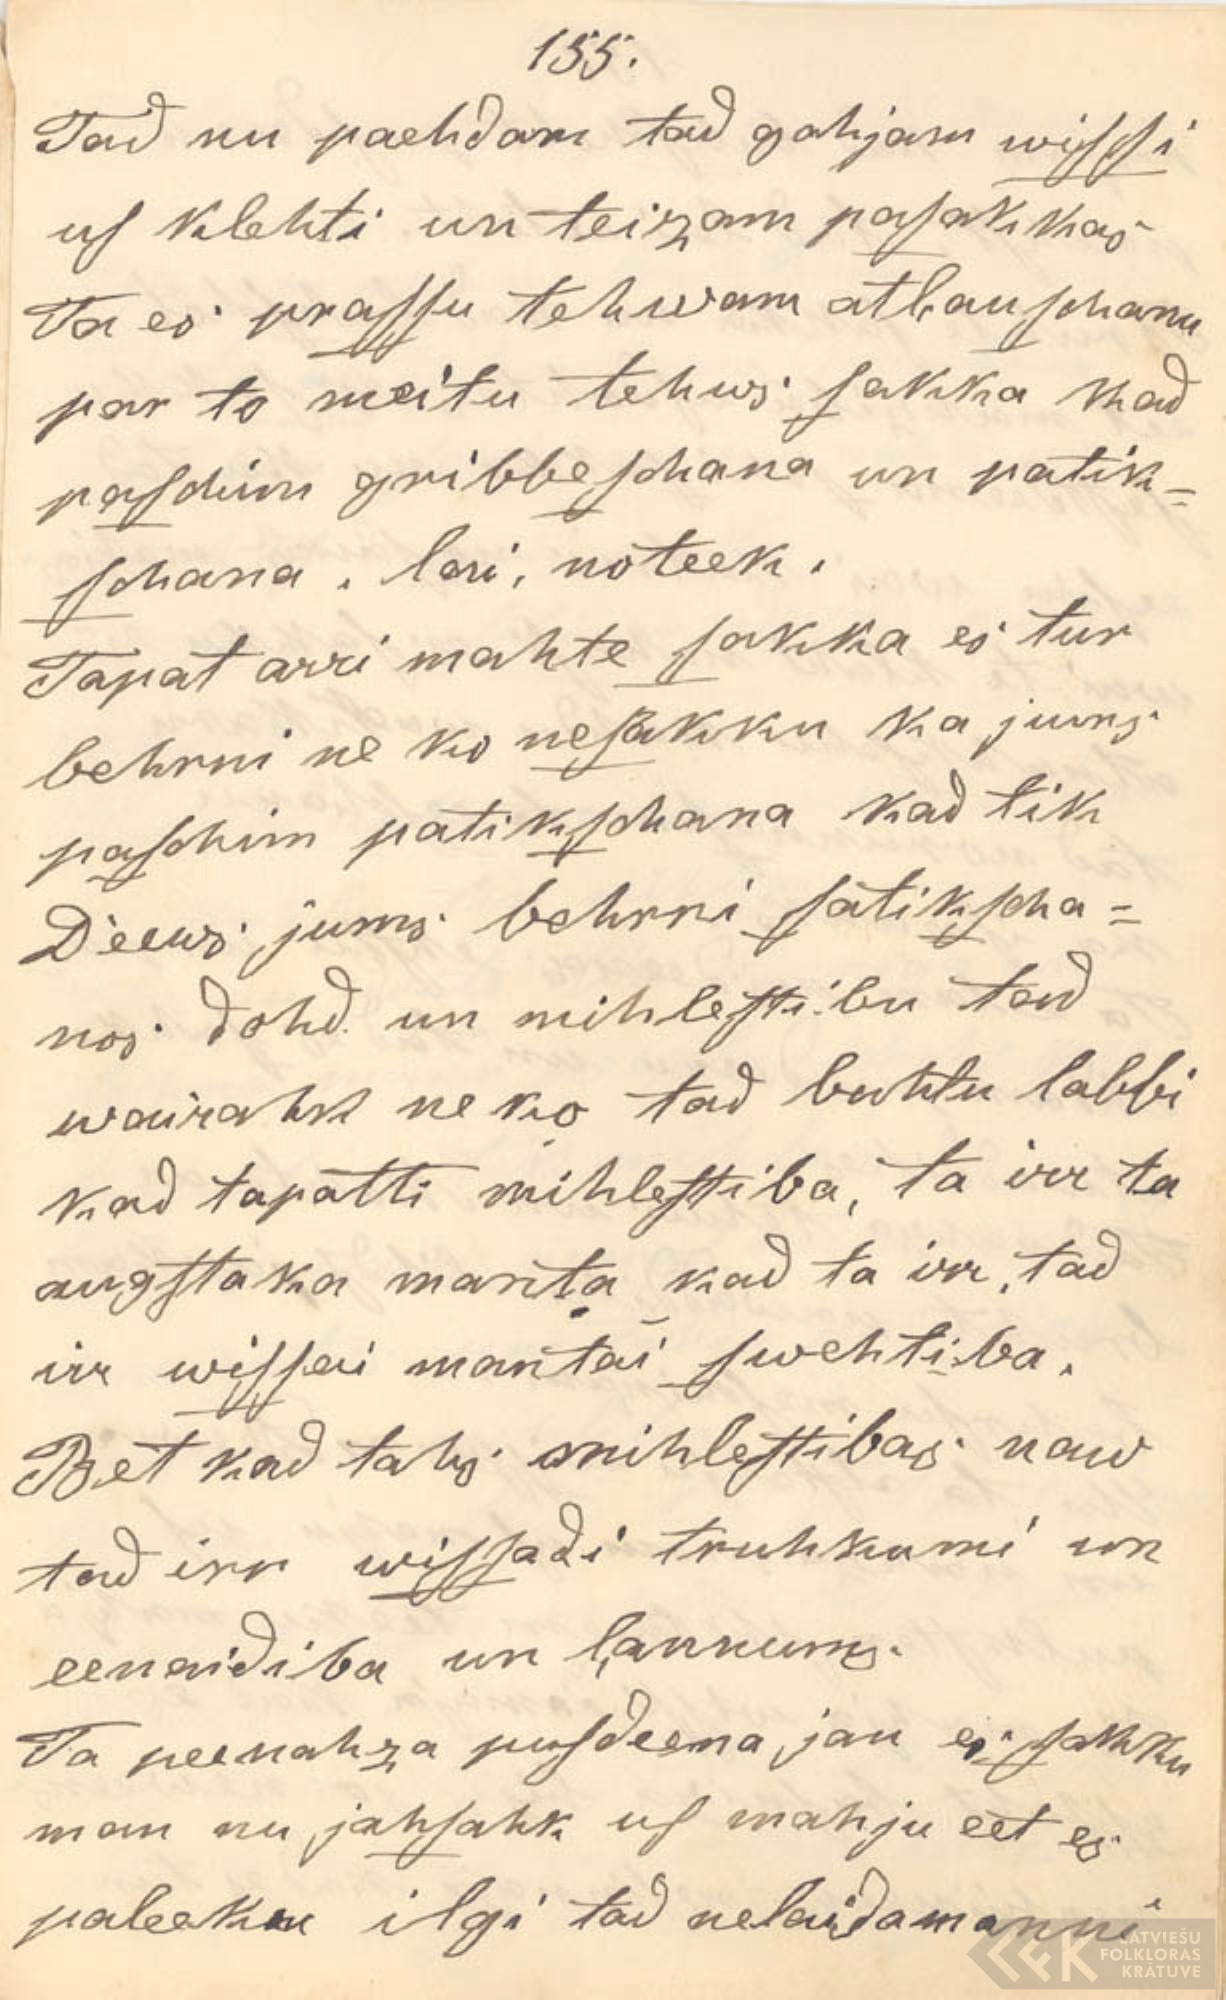 155.
Tad nu paehdam tad gahjam wiſſi
uſ klehti un teizam paſakkas
Ta es praſſu tehwam atļauſchanu
par to meitu tehws ſakka kad
paſchim gribbeſchana un patik=
ſchana. lai, noteek.
Tapat arri mahte ſakka es tur
behrni ne ko neſakku ka jums
paſchim patikſchana kad tik
Deews jums behrni ſatikſcha=
nas dohd un mihleſtibu tad
wairahk ne ko tad buhtu labbi
kad tapatti mihleſtiba, ta irr ta
augſtaka manta kad ta irr, tad
irr wiſſai mantai ſwehtiba.
Bet kad tahs mihleſtibas naw
tad irr wiſſadi truhkumi un
eenaidiba un ļannums.
Ta peenahza puſdeena jau es ſakku
man nu jahſahk uſ mahju eet es
paleeku ilgi tad nelaida manni
LATVIEŠU
FOLKLORAS
KRĀTUVE